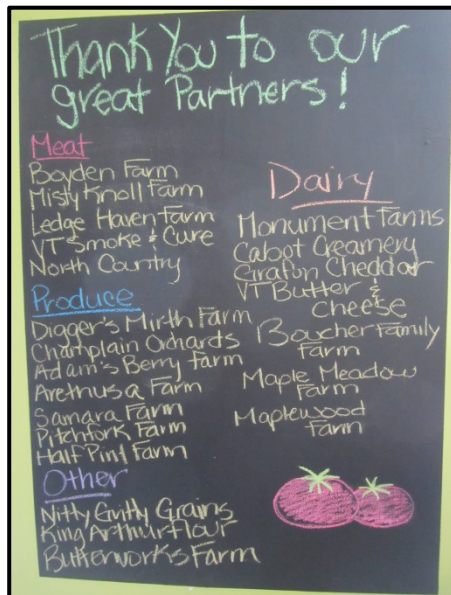 Thank You to our
great Partners!
Meat
Boyden Farm
Misty Knoll Farm
Ledge Haven Farm
VT Smoke & Cure
North Country
Produce
Digger's Mirth Farm
Champlain Orchards
Adam's Berry Farm
Arethusa Farm
Samara Farm
Pitchfork Farm
Half Pint Farm
Other
Nitty Gritty Grains
King Arthur flour
Butterworks Farm
Dairy
Monument Farms
Cabot Creamery
Grafton Cheddar
VT Butter &
Cheese
Boucher Family
Farm
Maple Meadow
Farm
Maplewood
Farm